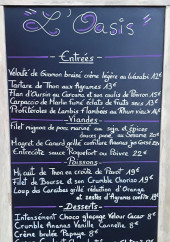 "L'Oasis"
Entrées
Velouté de Saumon braisé crème légère au Wasabi 12€
Tartare de Thon aux Agrumes 13€
Flan d'Oursin au Corail et son coulis de Poivron 15€
Carpaccio de Merlin fumé éclats de fruits secs 13€
Profiteroles de Lambis Flambées au Rhum vieux
Viandes
Filet mignon de porc mariné au soja, et épices
douces
Magret de Canard grillé confiture
Entrecôte sauce Roquefort ou Poivre 22€
Poissons
de Thon en croûte de Pavot 19€
Filet de Bourse et son Crumble Chorizo 19€
Loup de Caraïbes grillé réduction d'Orange
et zestes d'Agrumes confits 18€
Desserts
Intensément Choco glaçage Velour Cacao 8€
Crumble Ananas Vanille Cannelle 8€
Crème brulée Papaye 8€